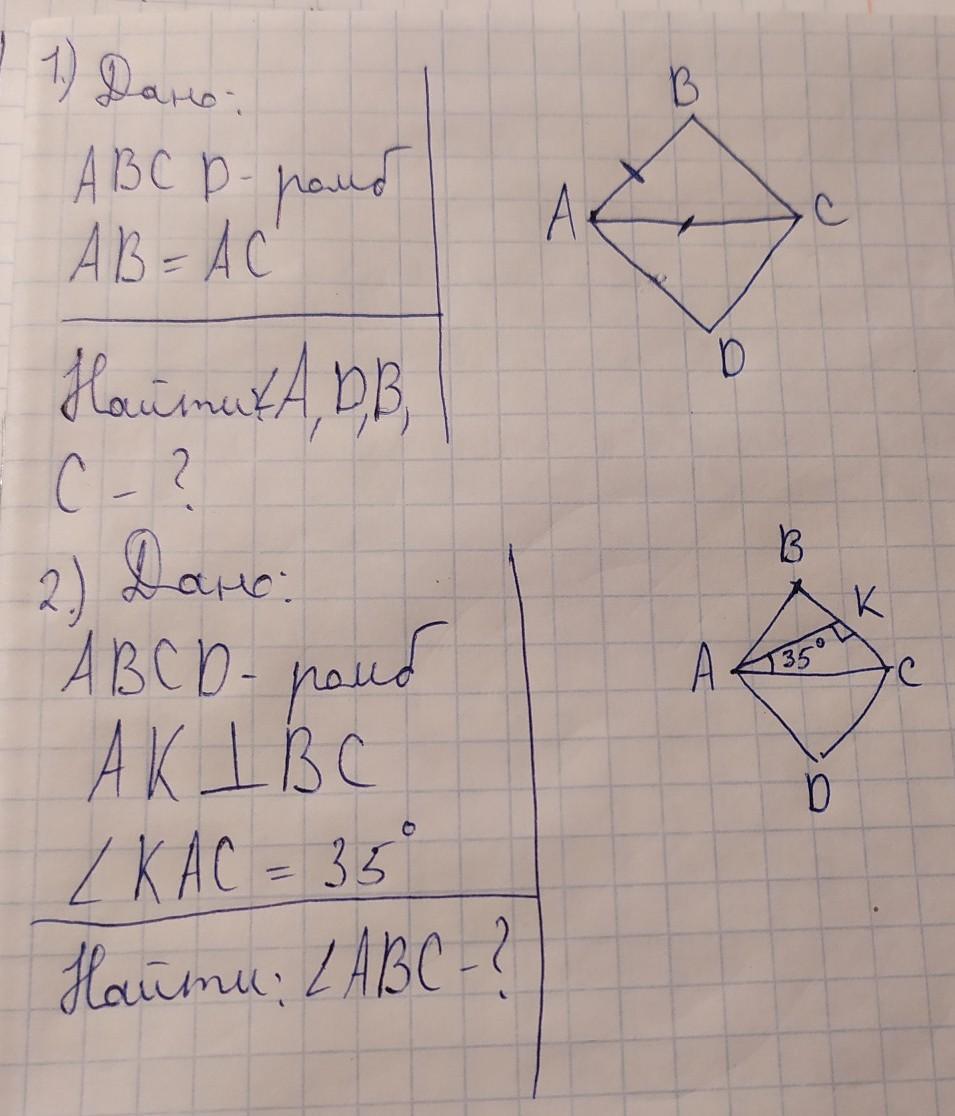 1.) Дано:
ABCD - ромб
AB = AC
Найти ∠A, D, B,
C - ?
B
A
C
D
2.) Дано:
ABCD - ромб
AK ⊥ BC
∠KAC = 35°
Найти: ∠ABC - ?
B
K
A
35°
C
D